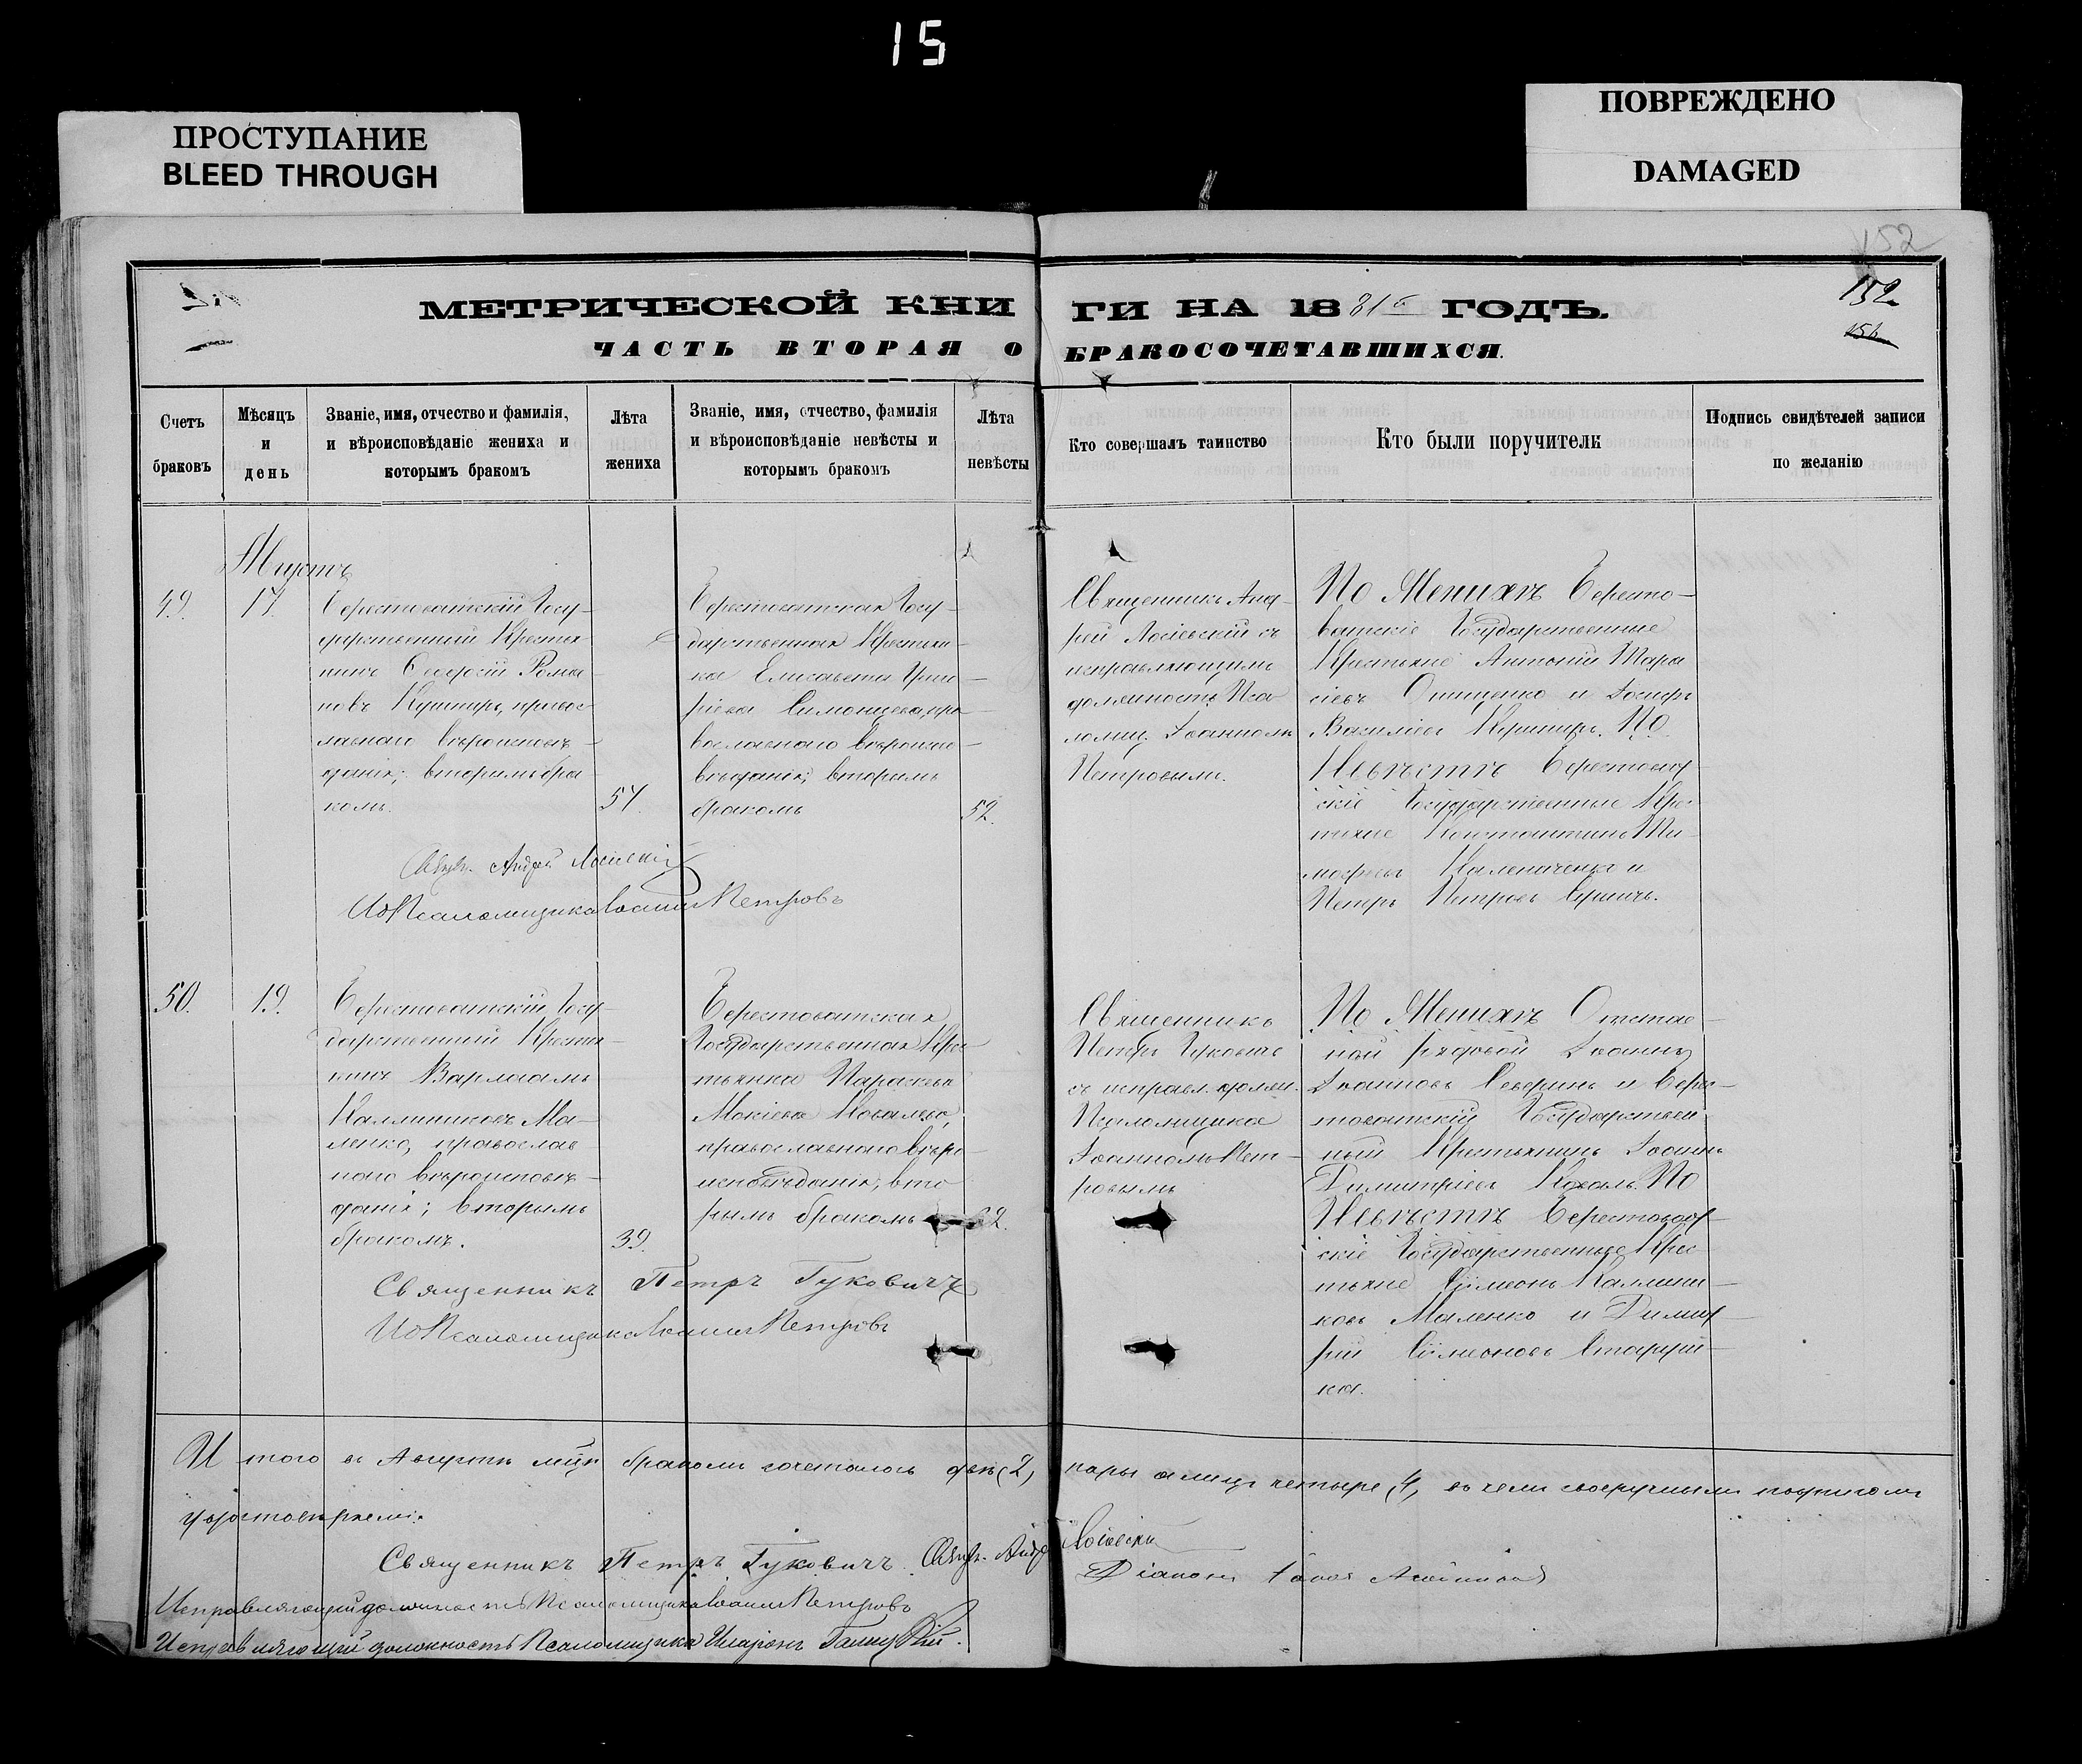 15
ПРОСТУПАНИЕ
BLEED THROUGH
ПОВРЕЖДЕНО
DAMAGED
152
МЕТРИЧЕСКОЙ КНИГИ НА 1881 ГОДЪ.
152
ЧАСТЬ ВТОРАЯ О БРАКОСОЧЕТАВШИХСЯ.
Счетъ
браковъ
Мѣсяцъ
и
день
Званіе, имя, отчество и фамилія,
и вѣроисповѣданіе жениха и
которымъ бракомъ
Лѣта
жениха
Званіе, имя, отчество, фамилія
и вѣроисповѣданіе невѣсты и
которымъ бракомъ
Лѣта
невѣсты
Кто совершалъ таинство
Кто были поручители
Подпись свидѣтелей записи
по желанію
49.
17.
Берестоватскій Госу-
дарственный Крестья-
нинъ Георгій Рома-
новъ Кушниръ, правос-
лавнаго вѣроисповѣ-
данія; вторымъ бра-
комъ.
57.
Берестоватская Госу-
дарственная Крестьян-
ка Елисавета Григо-
ріева Симонцева, пра-
вославнаго вѣроиспо-
вѣданія; вторымъ
бракомъ
52.
Священникъ Анд-
рей Лосіевскій съ
исправляющимъ
должность Пса-
ломщ. Іоанномъ
Петровымъ.
По Женихѣ Бересто-
ватскіе Государственные
Крестьяне Антоній Тара
сіевъ Онищенко и Іосифъ
Василіевъ Кушниръ. По
Невѣстѣ Берестоват-
скіе Государственные Кре-
стьяне Константинъ Ти-
мофеевъ Калениченко и
Петръ Петровъ
Свящ. Андрей Лосіевскій
ИД Псаломщика Іоаннъ Петровъ
50.
19.
Берестоватскій Госу-
дарственный Крестья-
нинъ Варлаамъ
Каллиниковъ Ма-
ленко, православ
наго вѣроисповѣ-
данія; вторымъ
бракомъ.
39.
Берестоватская
Государственная Крес
тьянка Параскева
Мокіева Ковалева,
православнаго вѣро-
исповѣданія, вто
рымъ бракомъ
Священникъ
Петръ Гуковичъ
съ исправл. должн.
Псаломщика
Іоанномъ Пет-
ровымъ
По Женихѣ Отстав-
ной рядовой Іоаннъ
Іоанновъ Северинъ и Берес-
товатскій Государствен-
ный Крестьянинъ Іоаннъ
Димитріевъ Коваль. По
Невѣстѣ Берестоват-
скіе Государственные Крес-
тьяне Сѵмеонъ Каллини-
ковъ Маленко и Димит-
рій Сѵмеоновъ
Священникъ Петръ Гуковичъ
ИД Псаломщика Іоаннъ Петровъ
Итого въ Августѣ мцѣ бракомъ сочеталось двѣ (2) пары а лицъ четыре (4), въ чемъ своеручнымъ подписомъ
удостовѣряемъ:
Священникъ Петръ Гуковичъ. Свящ. Андр Лосіевскій
Исправляющій должность Псаломщика Іоаннъ Петровъ
Діаконъ
Исправляющій должность Псаломщика Иларіонъ